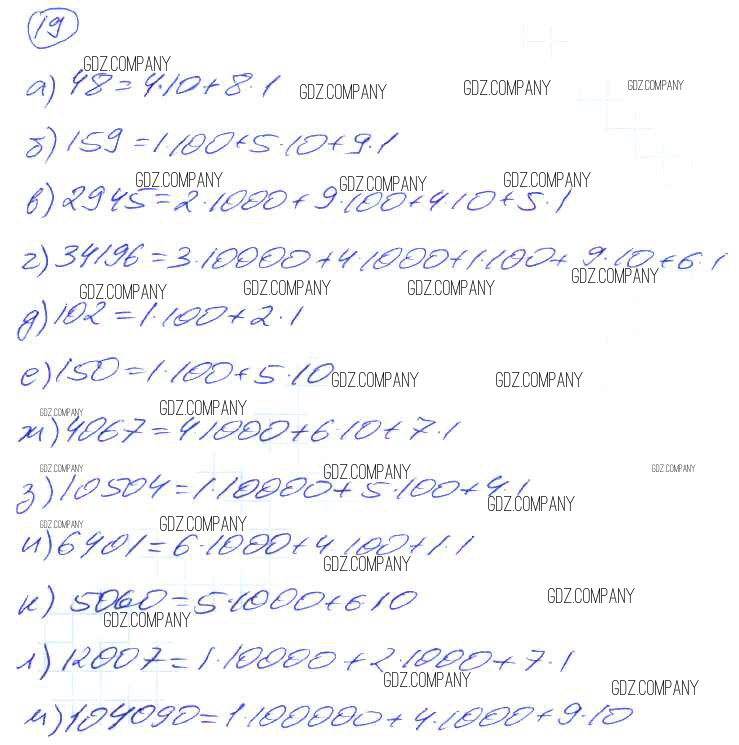 19
GDZ.COMPANY
а) 48=4·10+8·1
GDZ.COMPANY GDZ.COMPANY GDZ.COMPANY
б) 159=1·100+5·10+9·1
GDZ.COMPANY GDZ.COMPANY GDZ.COMPANY
в) 2945=2·1000+9·100+4·10+5·1
г) 34196=3·10000+4·1000+1·100+9·10+6·1
GDZ.COMPANY GDZ.COMPANY GDZ.COMPANY GDZ.COMPANY
д) 102=1·100+2·1
е) 150=1·100+5·10
GDZ.COMPANY GDZ.COMPANY
GDZ.COMPANY GDZ.COMPANY
ж) 4067=4·1000+6·10+7·1
GDZ.COMPANY GDZ.COMPANY GDZ.COMPANY
з) 10504=1·10000+5·100+4·1
GDZ.COMPANY
GDZ.COMPANY GDZ.COMPANY
и) 6401=6·1000+4·100+1·1
GDZ.COMPANY
к) 5060=5·1000+6·10
GDZ.COMPANY
GDZ.COMPANY
л) 12007=1·10000+2·1000+7·1
GDZ.COMPANY GDZ.COMPANY
м) 104090=1·100000+4·1000+9·10